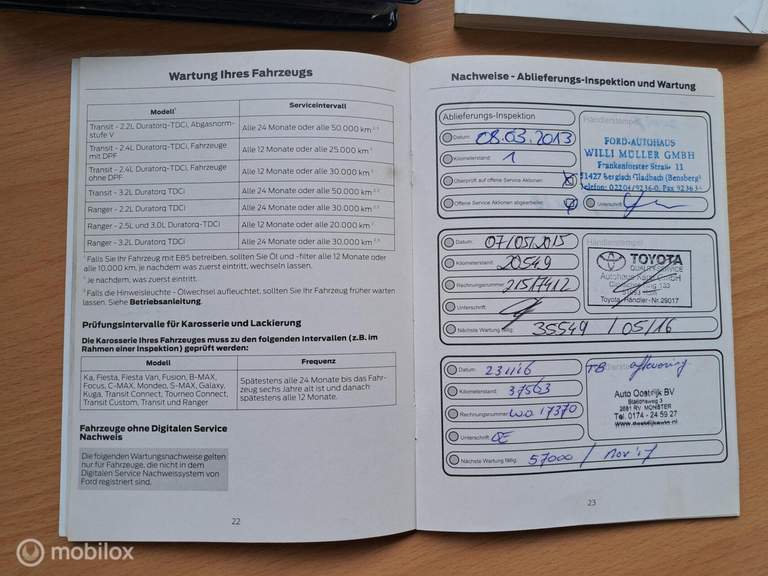 Wartung Ihres Fahrzeugs
Modell¹ Serviceintervall
Transit - 2.2L Duratorq-TDCi, Abgasnorm-
stufe V Alle 24 Monate oder alle 50.000 km
Transit - 2.4L Duratorq-TDCi, Fahrzeuge
mit DPF Alle 12 Monate oder alle 25.000 km
Transit - 2.4L Duratorq-TDCi, Fahrzeuge
ohne DPF Alle 12 Monate oder alle 30.000 km
Transit - 3.2L Duratorq TDCi Alle 24 Monate oder alle 50.000 km
Ranger - 2.2L Duratorq TDCi Alle 24 Monate oder alle 30.000 km
Ranger - 2.5L und 3.0L Duratorq-TDCi Alle 12 Monate oder alle 20.000 km
Ranger - 3.2L Duratorq TDCi Alle 24 Monate oder alle 30.000 km
¹ Falls Sie Ihr Fahrzeug mit E85 betreiben, sollten Sie Öl und -filter alle 12 Monate oder
alle 10.000 km, je nachdem was zuerst eintritt, wechseln lassen.
² Je nachdem, was zuerst eintritt.
³ Falls die Hinweisleuchte - Ölwechsel aufleuchtet, sollten Sie Ihr Fahrzeug früher warten
lassen. Siehe Betriebsanleitung.
Prüfungsintervalle für Karosserie und Lackierung
Die Karosserie Ihres Fahrzeuges muss zu den folgenden Intervallen (z.B. im
Rahmen einer Inspektion) geprüft werden:
Modell Frequenz
Ka, Fiesta, Fiesta Van, Fusion, B-MAX,
Focus, C-MAX, Mondeo, S-MAX, Galaxy,
Kuga, Transit Connect, Tourneo Connect,
Transit Custom, Transit und Ranger
Spätestens alle 24 Monate bis das Fahr-
zeug sechs Jahre alt ist und danach
spätestens alle 12 Monate.
Fahrzeuge ohne Digitalen Service
Nachweis
Die folgenden Wartungsnachweise gelten
nur für Fahrzeuge, die nicht in dem
Digitalen Service Nachweissystem von
Ford registriert sind.
22
Nachweise - Ablieferungs-Inspektion und Wartung
Ablieferungs-Inspektion
Händlerstempel
Datum: 08.03.2013
Kilometerstand: 1
Überprüft auf offene Service Aktionen
Offene Service Aktionen abgearbeitet
FORD-AUTOHAUS
WILLI MÜLLER GMBH
Frankenforster Straße 11
51427 Bergisch Gladbach (Bensberg)
Telefon: 02204/9236-0, Fax 9236
Unterschrift
Datum: 07/05/2015
Kilometerstand: 20549
Rechnungsnummer: 21517412
Unterschrift:
Nächste Wartung fällig: 35549 / 05/16
Händlerstempel
TOYOTA
QUALITY SERVICE
Autohaus
Toyota-Händler-Nr. 29017
Datum: 231116
Kilometerstand: 37563
Rechnungsnummer: WO 17370
Unterschrift
Nächste Wartung fällig: 57000 / nov 17
TB aflevering
Auto Oostrijk BV
Stationsweg 3
2681 RV MONSTER
Tel. 0174 - 24 59 27
23
mobilox